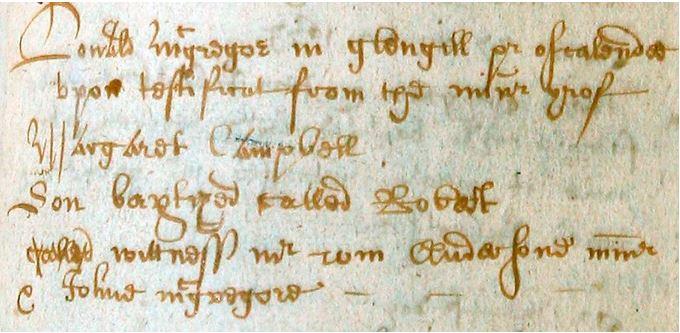 Donald McGregor in Glengill pr of Calender
upon testificat from the minr yrof
Margaret Campbell
Son baptized called Robert
wittness mr Wm Andersone minr
& Johne mcgregore